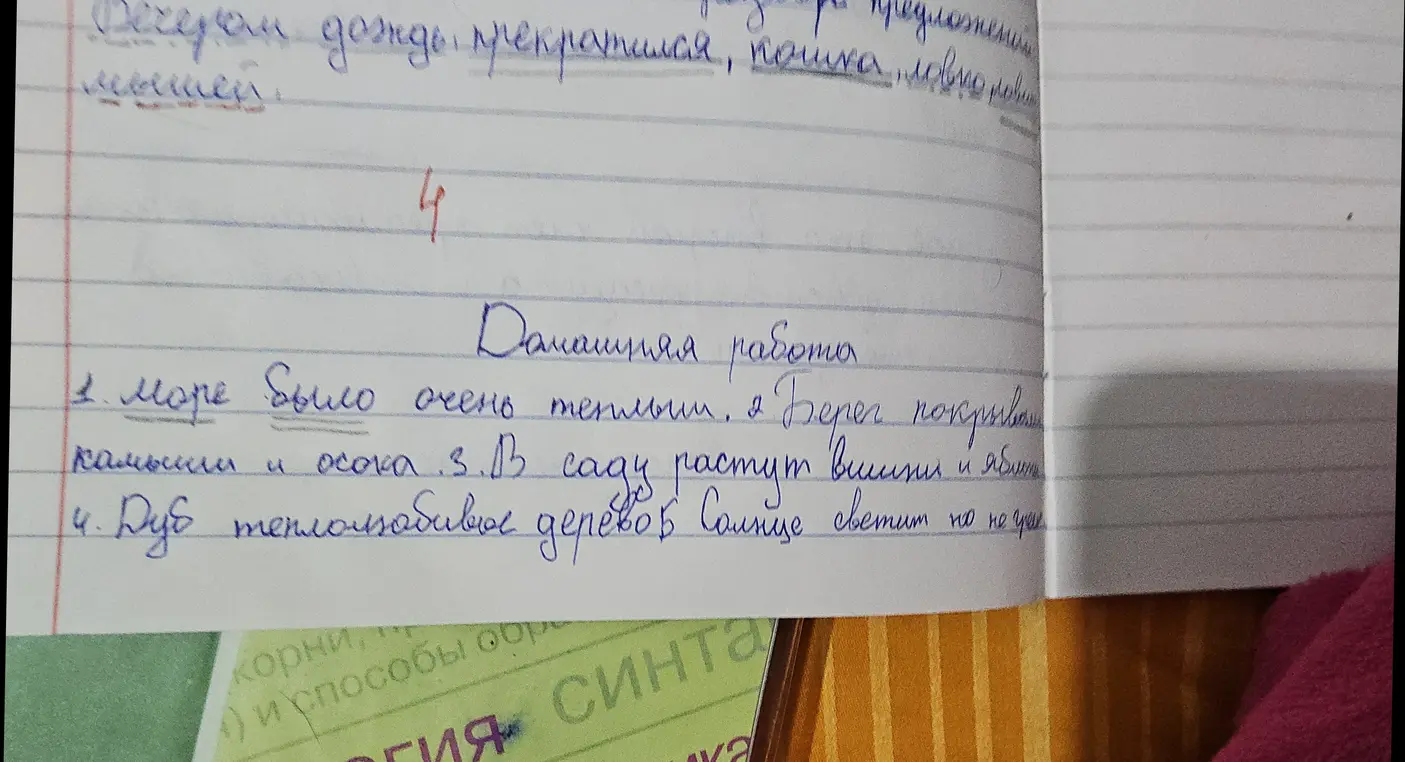 предложений
Вечером дождь прекратился, кошка ловко
мышей.
4
Домашняя работа
1. море было очень теплым. 2 Берег
камыши и осока. 3. В саду растут вишни и
4. Дуб теплолюбивое дерево 5 Солнце светит но не
корни,
) и способы
СИНТА
ОГИЯ